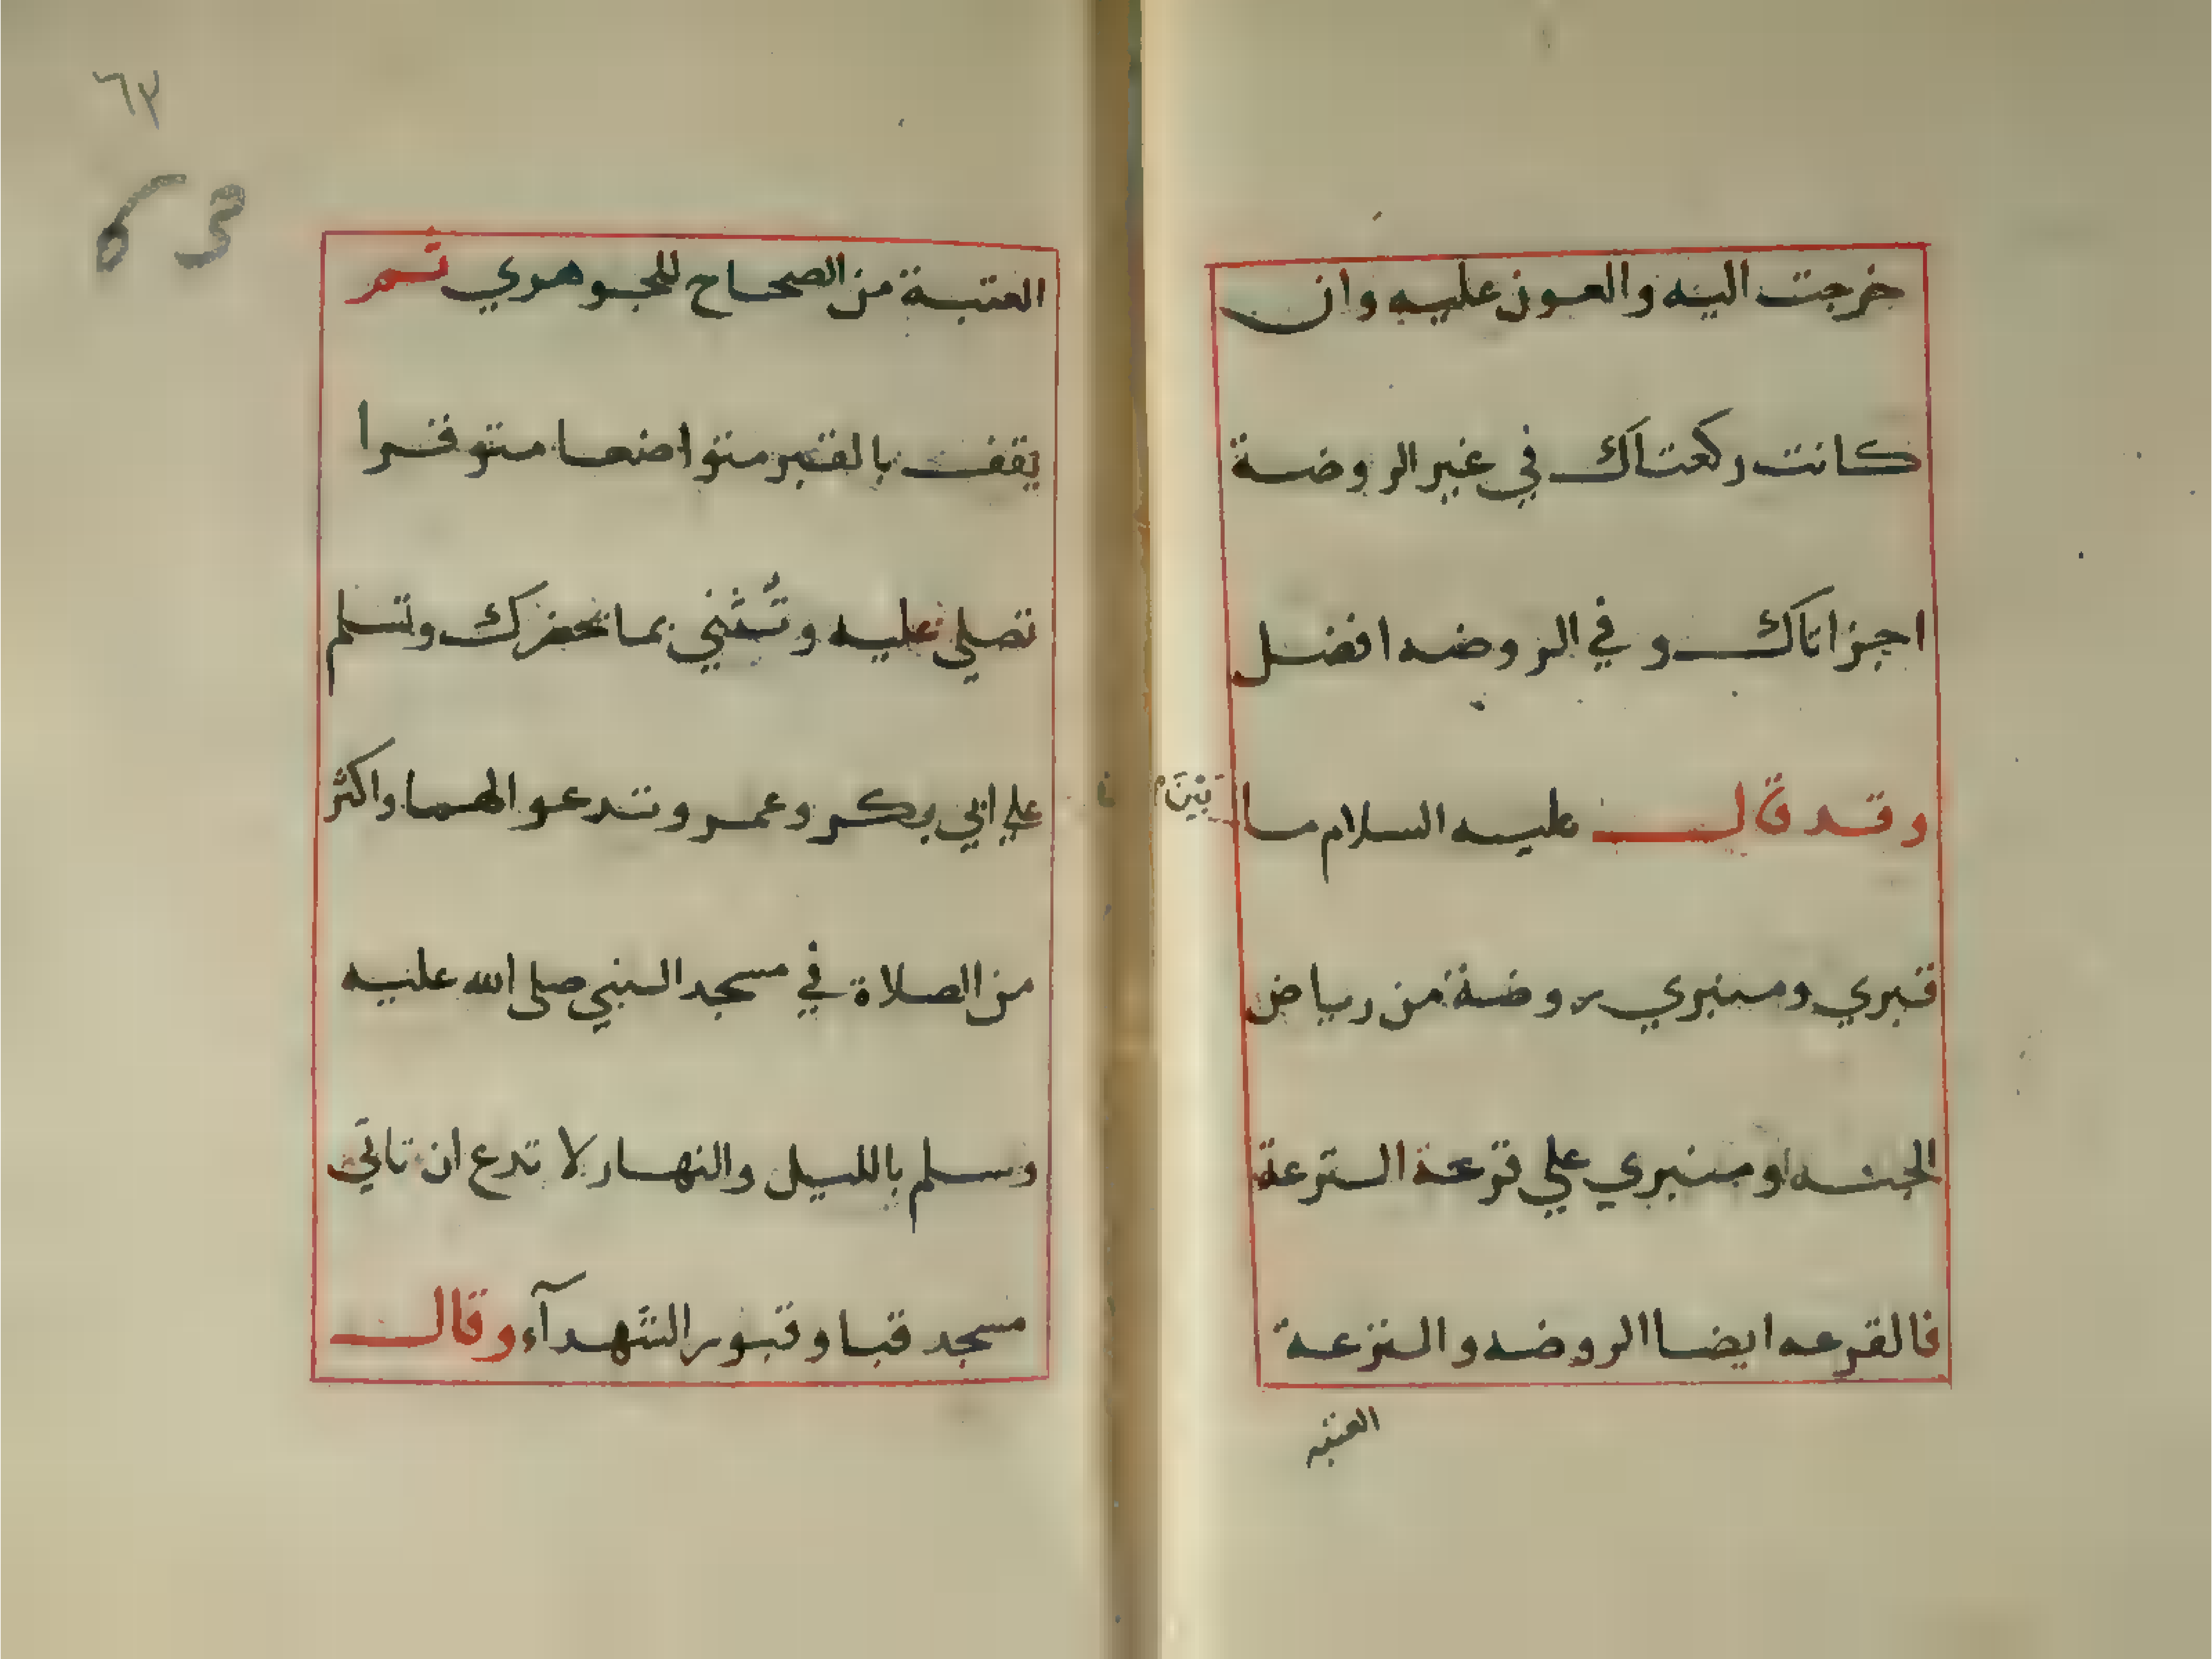 خرجت اليه والعون عليه وان
كانت ركعتاك في غير الروضة
اجزاتاك وفي الروضه افضل
وقد قال عليه السلام ما بين
قبري ومنبري روضة من رياض
الجنه ومنبري علي ترعة الترعة
فالقرعه ايضا الروضه والترعة
العتبه
٦٣
63
العتبة من الصحاح للجوهري ثم
يقف بالقبر متواضعا متوقرا
تصلي عليه وتثني بما يحضرك وتسلم
علي ابي بكر وعمر وتدعوا لهما واكثر
من الصلاة في مسجد النبي صلى الله عليه
وسلم بالليل والنهار لا تدع ان تاتي
مسجد قبا وقبور الشهدآء وقال